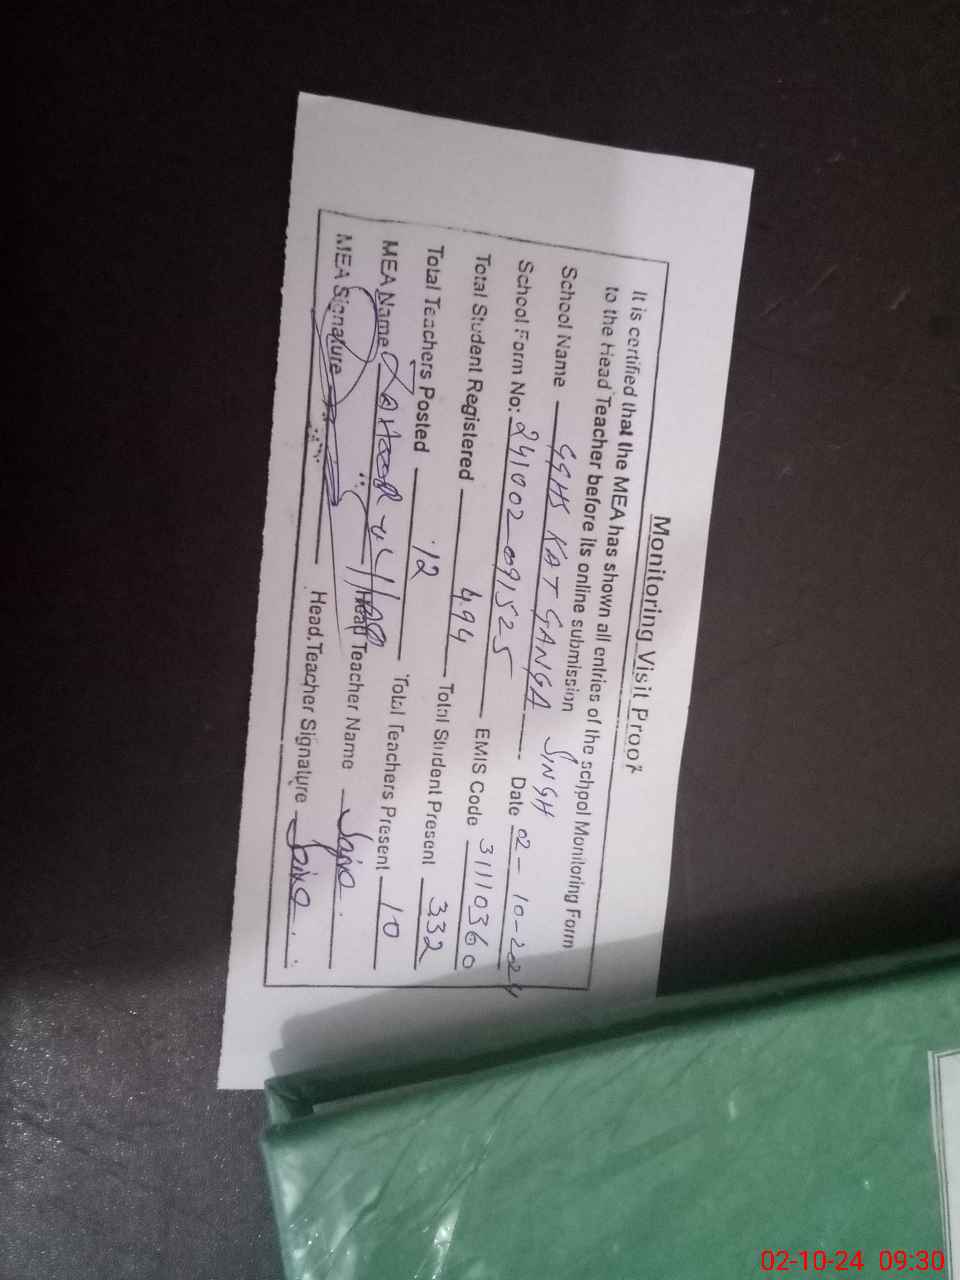 Monitoring Visit Proof
It is certified that the MEA has shown all entries of the school Monitoring Form
to the Head Teacher before its online submission
School Name GGHS KAT GANGA SINGH
School Form No: 241002-091525 Date 02-10-2024
Total Student Registered 494 EMIS Code 31110360
Total Teachers Posted 12 Total Student Present 332
MEA Name Total Teachers Present 10
MEA Signature Head Teacher Name
Head Teacher Signature
02-10-24 09:30